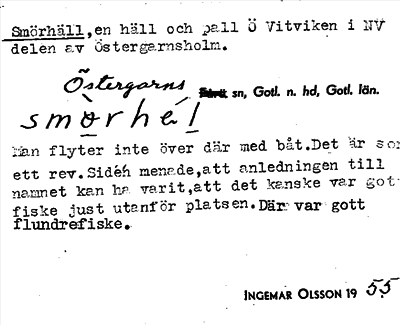 Smörhäll,en häll och pall Ö Vitviken i NV
delen av Östergarnsholm.
Östergarns sn, Gotl. n. hd, Gotl. län.
smòrhé l
Man flyter inte över där med båt.Det är so
ett rev.Sidéh menade,att anledningen till
namnet kan ha varit,att det kanske var got
fiske just utanför platsen.Där var gott
flundrefiske.
INGEMAR OLSSON 19 55